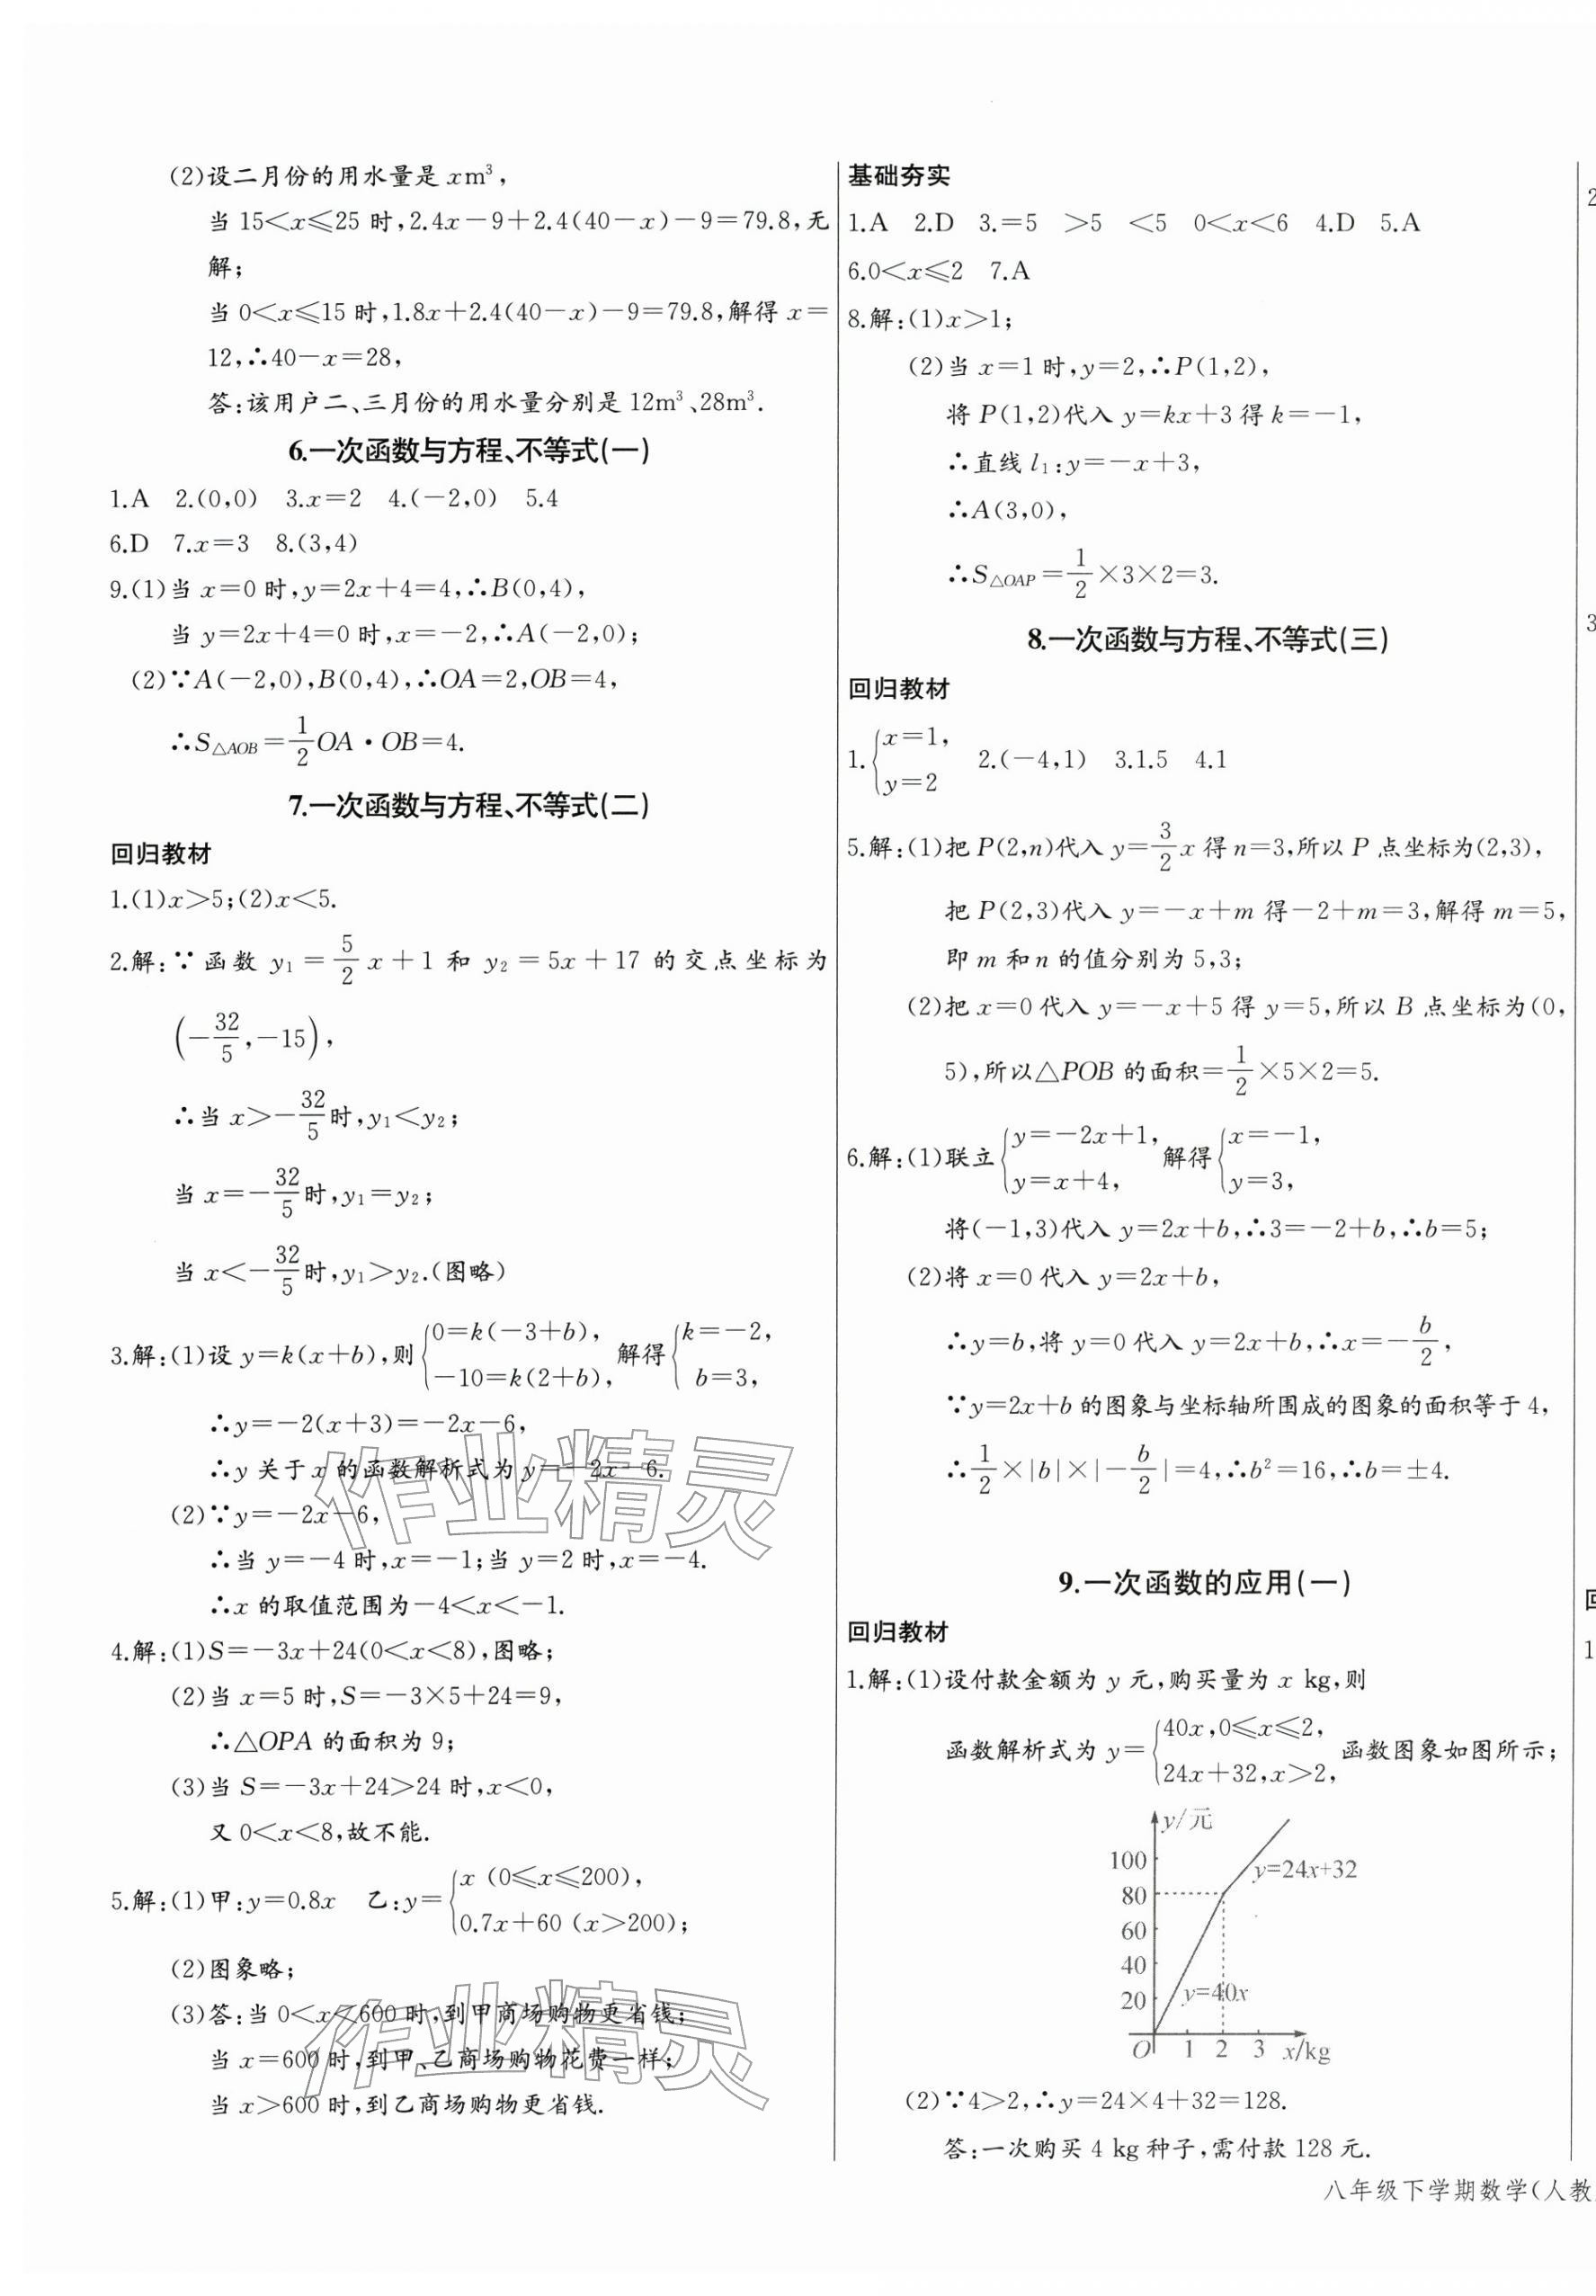 (2)设二月份的用水量是 xm³,
当 15<x≤25 时,2.4x-9+2.4(40-x)-9=79.8,无
解;
当 0<x≤15 时,1.8x+2.4(40-x)-9=79.8,解得 x=
12,∴40-x=28,
答:该用户二、三月份的用水量分别是 12m³、28m³.
6.一次函数与方程、不等式(一)
1.A 2.(0,0) 3.x=2 4.(-2,0) 5.4
6.D 7.x=3 8.(3,4)
9.(1)当 x=0 时,y=2x+4=4,∴B(0,4),
当 y=2x+4=0 时,x=-2,∴A(-2,0);
(2)∵A(-2,0),B(0,4),∴OA=2,OB=4,
∴S△AOB=1/2 OA·OB=4.
7.一次函数与方程、不等式(二)
回归教材
1.(1)x>5;(2)x<5.
2.解:∵函数 y₁=5/2 x+1 和 y₂=5x+17 的交点坐标为
(-32/5,-15),
∴当 x>-32/5 时,y₁<y₂;
当 x=-32/5 时,y₁=y₂;
当 x<-32/5 时,y₁>y₂.(图略)
3.解:(1)设 y=k(x+b),则{0=k(-3+b), -10=k(2+b), 解得{k=-2, b=3,
∴y=-2(x+3)=-2x-6,
∴y 关于 x 的函数解析式为 y=-2x-6.
(2)∵y=-2x-6,
∴当 y=-4 时,x=-1;当 y=2 时,x=-4.
∴x 的取值范围为-4<x<-1.
4.解:(1)S=-3x+24(0<x<8),图略;
(2)当 x=5 时,S=-3×5+24=9,
∴△OPA 的面积为 9;
(3)当 S=-3x+24>24 时,x<0,
又 0<x<8,故不能.
5.解:(1)甲:y=0.8x 乙:y={x (0≤x≤200), 0.7x+60 (x>200);
(2)图象略;
(3)答:当 0<x<600 时,到甲商场购物更省钱;
当 x=600 时,到甲、乙商场购物花费一样;
当 x>600 时,到乙商场购物更省钱.
作业精灵
作业精灵
基础夯实
1.A 2.D 3.=5 >5 <5 0<x<6 4.D 5.A
6.0<x≤2 7.A
8.解:(1)x>1;
(2)当 x=1 时,y=2,∴P(1,2),
将 P(1,2)代入 y=kx+3 得 k=-1,
∴直线 l₁:y=-x+3,
∴A(3,0),
∴S△OAP=1/2×3×2=3.
8.一次函数与方程、不等式(三)
回归教材
1.{x=1, y=2 2.(-4,1) 3.1.5 4.1
5.解:(1)把 P(2,n)代入 y=3/2 x 得 n=3,所以 P 点坐标为(2,3),
把 P(2,3)代入 y=-x+m 得-2+m=3,解得 m=5,
即 m 和 n 的值分别为 5,3;
(2)把 x=0 代入 y=-x+5 得 y=5,所以 B 点坐标为(0,
5),所以△POB 的面积=1/2×5×2=5.
6.解:(1)联立{y=-2x+1, y=x+4, 解得{x=-1, y=3,
将(-1,3)代入 y=2x+b,∴3=-2+b,∴b=5;
(2)将 x=0 代入 y=2x+b,
∴y=b,将 y=0 代入 y=2x+b,∴x=-b/2,
∵y=2x+b 的图象与坐标轴所围成的图象的面积等于 4,
∴1/2×|b|×|-b/2|=4,∴b²=16,∴b=±4.
9.一次函数的应用(一)
回归教材
1.解:(1)设付款金额为 y 元,购买量为 x kg,则
函数解析式为 y={40x,0≤x≤2, 24x+32,x>2, 函数图象如图所示;
y/元
100
y=24x+32
80
60
40
20
y=40x
O 1 2 3 x/kg
(2)∵4>2,∴y=24×4+32=128.
答:一次购买 4 kg 种子,需付款 128 元.
2
3
1
八年级下学期数学(人教